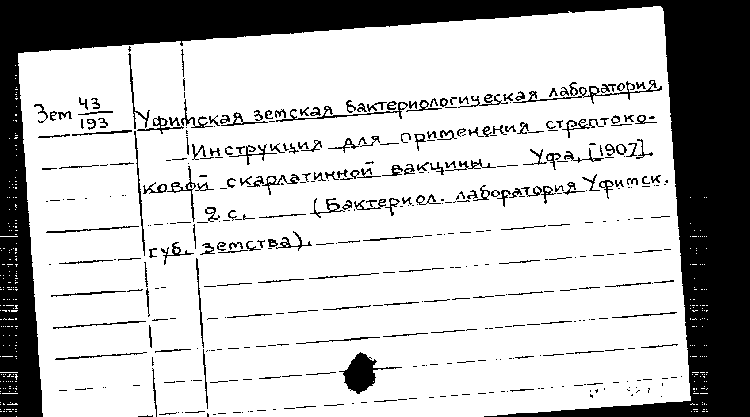 Зем 43/193
Уфимская земская бактериологическая лаборатория.
Инструкция для применения стрептоко-
ковой скарлатинной вакцины. Уфа, [1907].
2 с. (Бактериол. лаборатория Уфимск.
губ. земства).